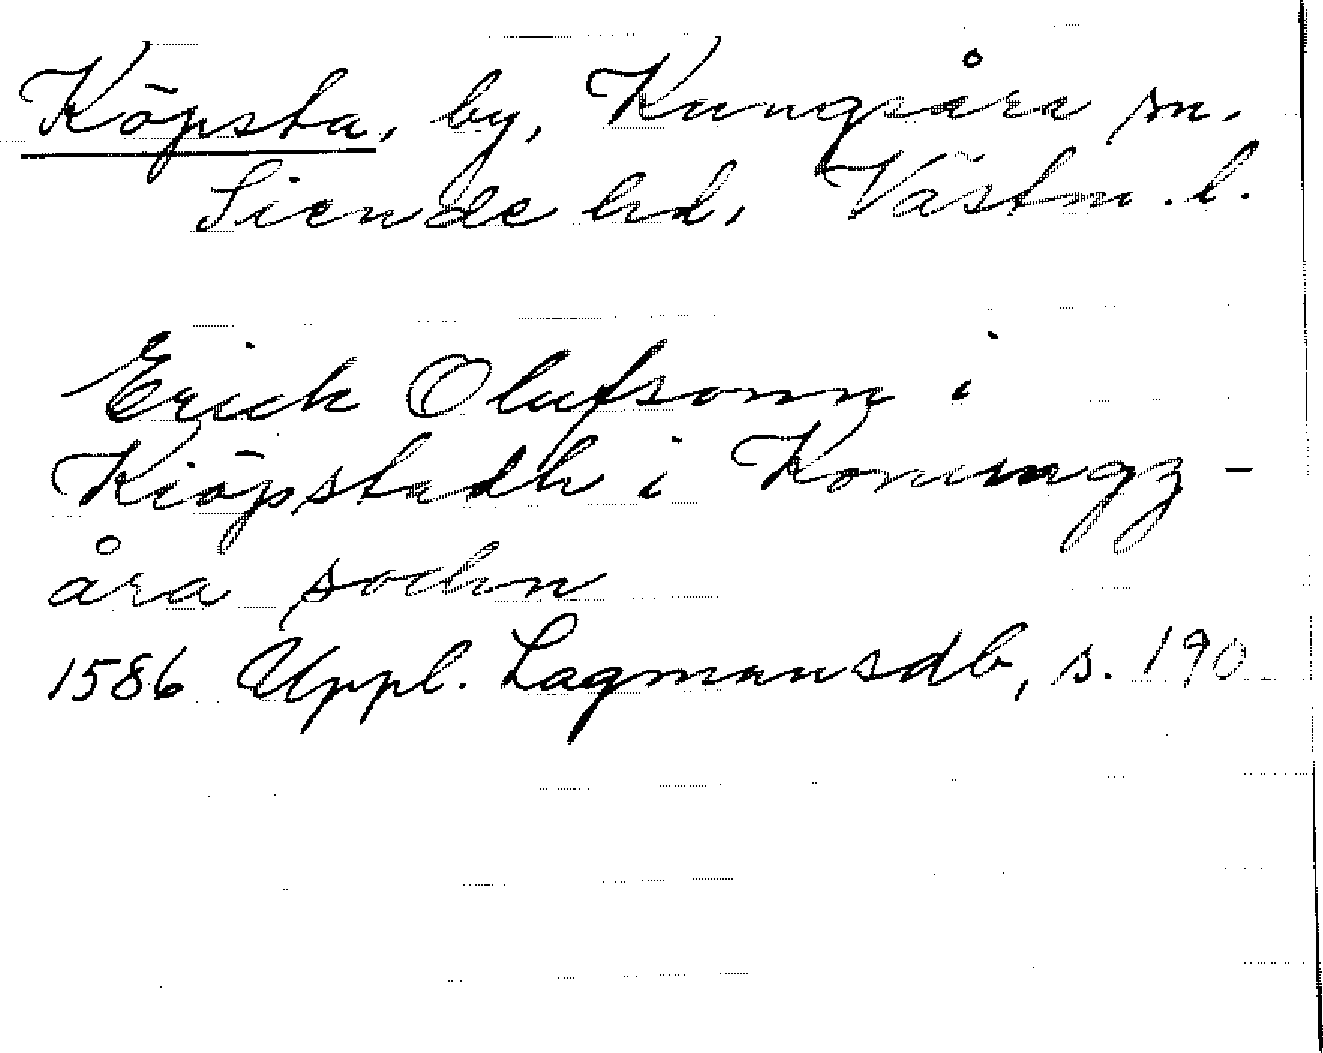 Köpsta, by, Kungsåra sn.
Siende hd, Västm. l.
Erick Olufsonn i
Kiöpstadh i Konungz-
åra sochn
1586 Uppl. Lagmansdb, s. 190